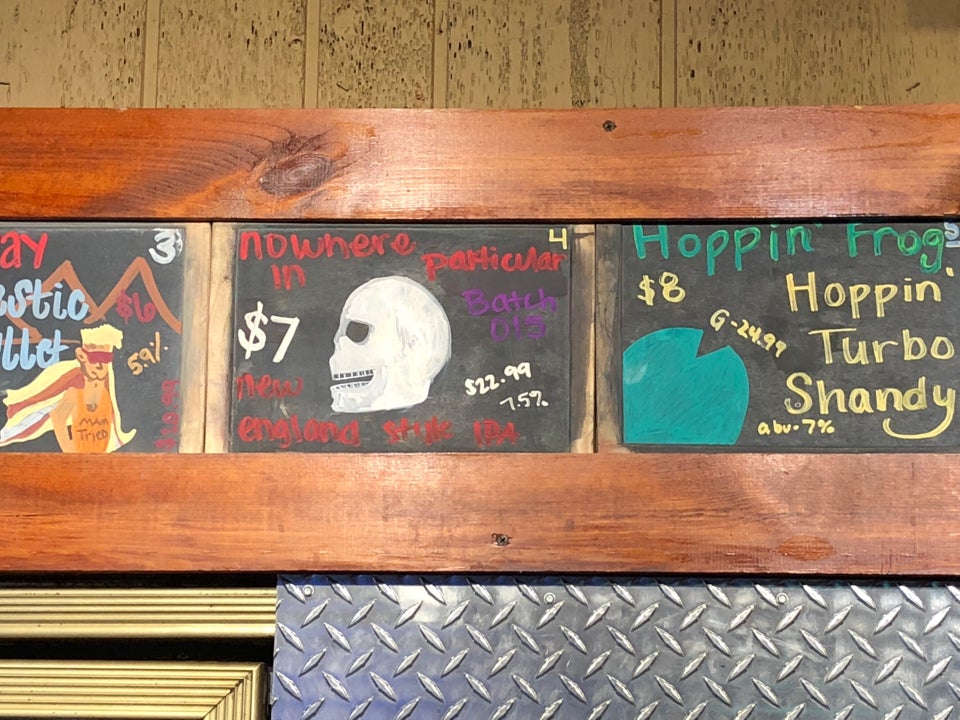 3
$6
5.9%
MAM
Tried
nowhere
in
particular
4
$7
Batch
013
$22.99
7.5%
new
england style IPA
Hoppin' Frog
$8
G-24.99
Hoppin'
Turbo
Shandy
abv-7%